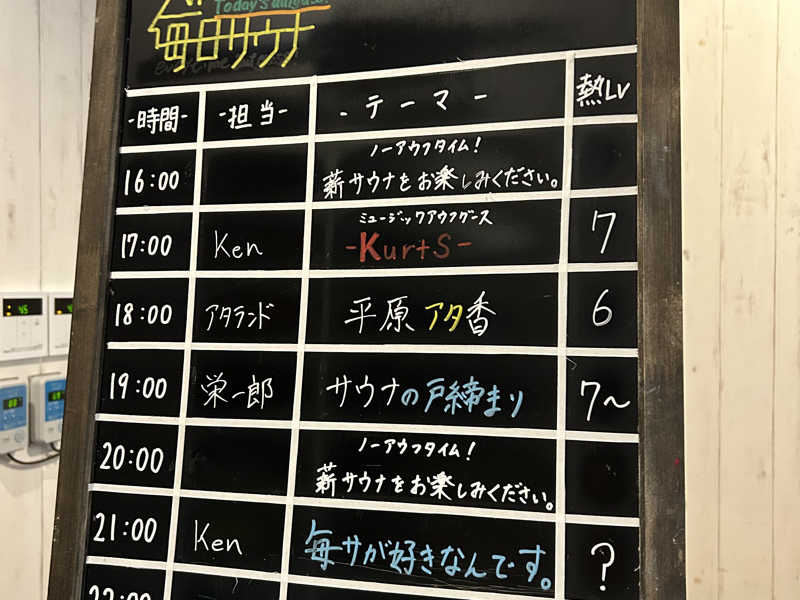 Today's aufguss!
毎日サウナ
-時間- -担当- -テーマ- 熱Lv
16:00 ノーアウフタイム!
薪サウナをお楽しみください。
17:00 Ken ミュージックアウフグース
-KurtS- 7
18:00 アタランド 平原アタ香 6
19:00 栄一郎 サウナの戸締まり 7~
20:00 ノーアウフタイム!
薪サウナをお楽しみください。
21:00 Ken 毎サが好きなんです。 ?
22:00